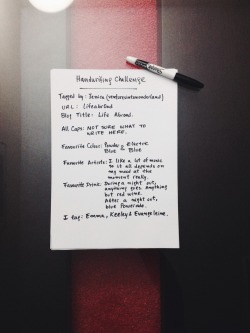 Handwriting Challenge
Tagged by: Jessica (ventureontowonderland)
URL: lifeabr0ad
Blog Title: Life Abroad.
All Caps: NOT SURE WHAT TO
WRITE HERE.
Favourite Colour: Powder & Electric
Blue Blue
Favourite Artists: I like a lot of music
so it all depends on
my mood at the
moment really.
Favourite Drink: During a night out,
anything goes. Anything
but red wine.
After a night out,
blue Powerade.
I tag: Emma, Keeley & Evangeleine.